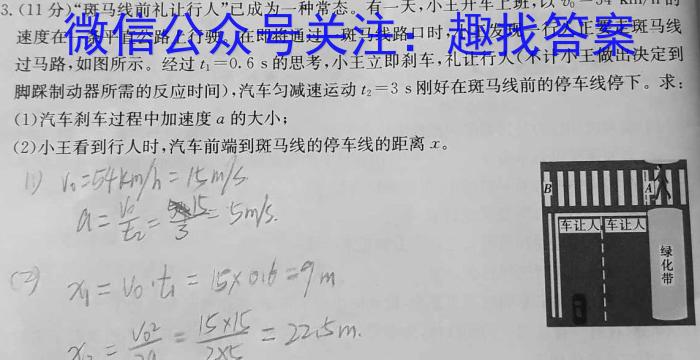 3.(11分)"斑马线前礼让行人"已成为一种常态。有一天,小王开车上班,以v₀=54 km/h的
速度在一条平直公路上行驶。在即将通过一斑马线路口时,小王发现一行人正要走斑马线
微信公众号关注:趣找答案
过马路,如图所示。经过t₁=0.6 s的思考,小王立即刹车,礼让行人(不计小王做出决定到
脚踩制动器所需的反应时间),汽车匀减速运动t₂=3 s刚好在斑马线前的停车线停下。求:
(1)汽车刹车过程中加速度a的大小;
(2)小王看到行人时,汽车前端到斑马线的停车线的距离x。
(1) v₀=54km/h=15m/s
a=v₀/t₂=15/3=5m/s.
(2) x₁=v₀·t₁=15×0.6=9m
x₂=v₀²/2a=15×15/2×5=22.5m.
B A
车让人 车让人
绿化带